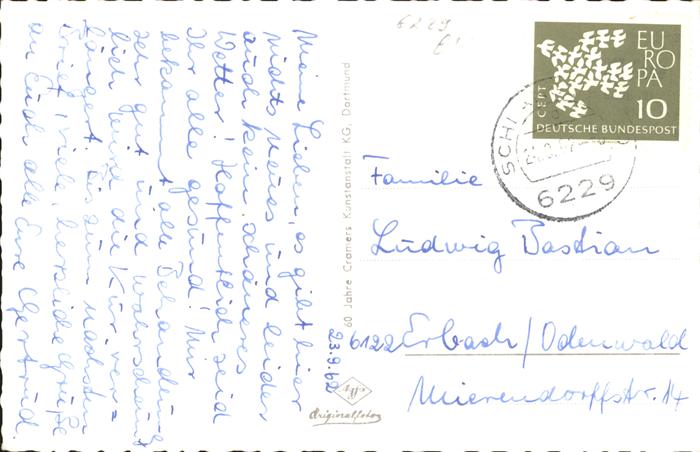 Meine Lieben, es gibt hier
nichts Neues und leider
auch kein schöneres
Wetter! Hoffentlich seid
Ihr alle gesund! Mir
bekommt alle Behandlung
sehr gut und wahrschein
lich wird die Kur ver=
längert. Bis zum nächsten
Brief viele, herzliche Grüße
an Euch alle Eure Gertrud.
60 Jahre Cramers Kunstanstalt KG, Dortmund
23.9.62
Agfa
Originalfoto
6229
EU
RO
PA
CEPT
10
DEUTSCHE BUNDESPOST
SCHL
6229
Familie
Ludwig Bastian
6122 Erbach/Odenwald
Mierendorffstr. 14